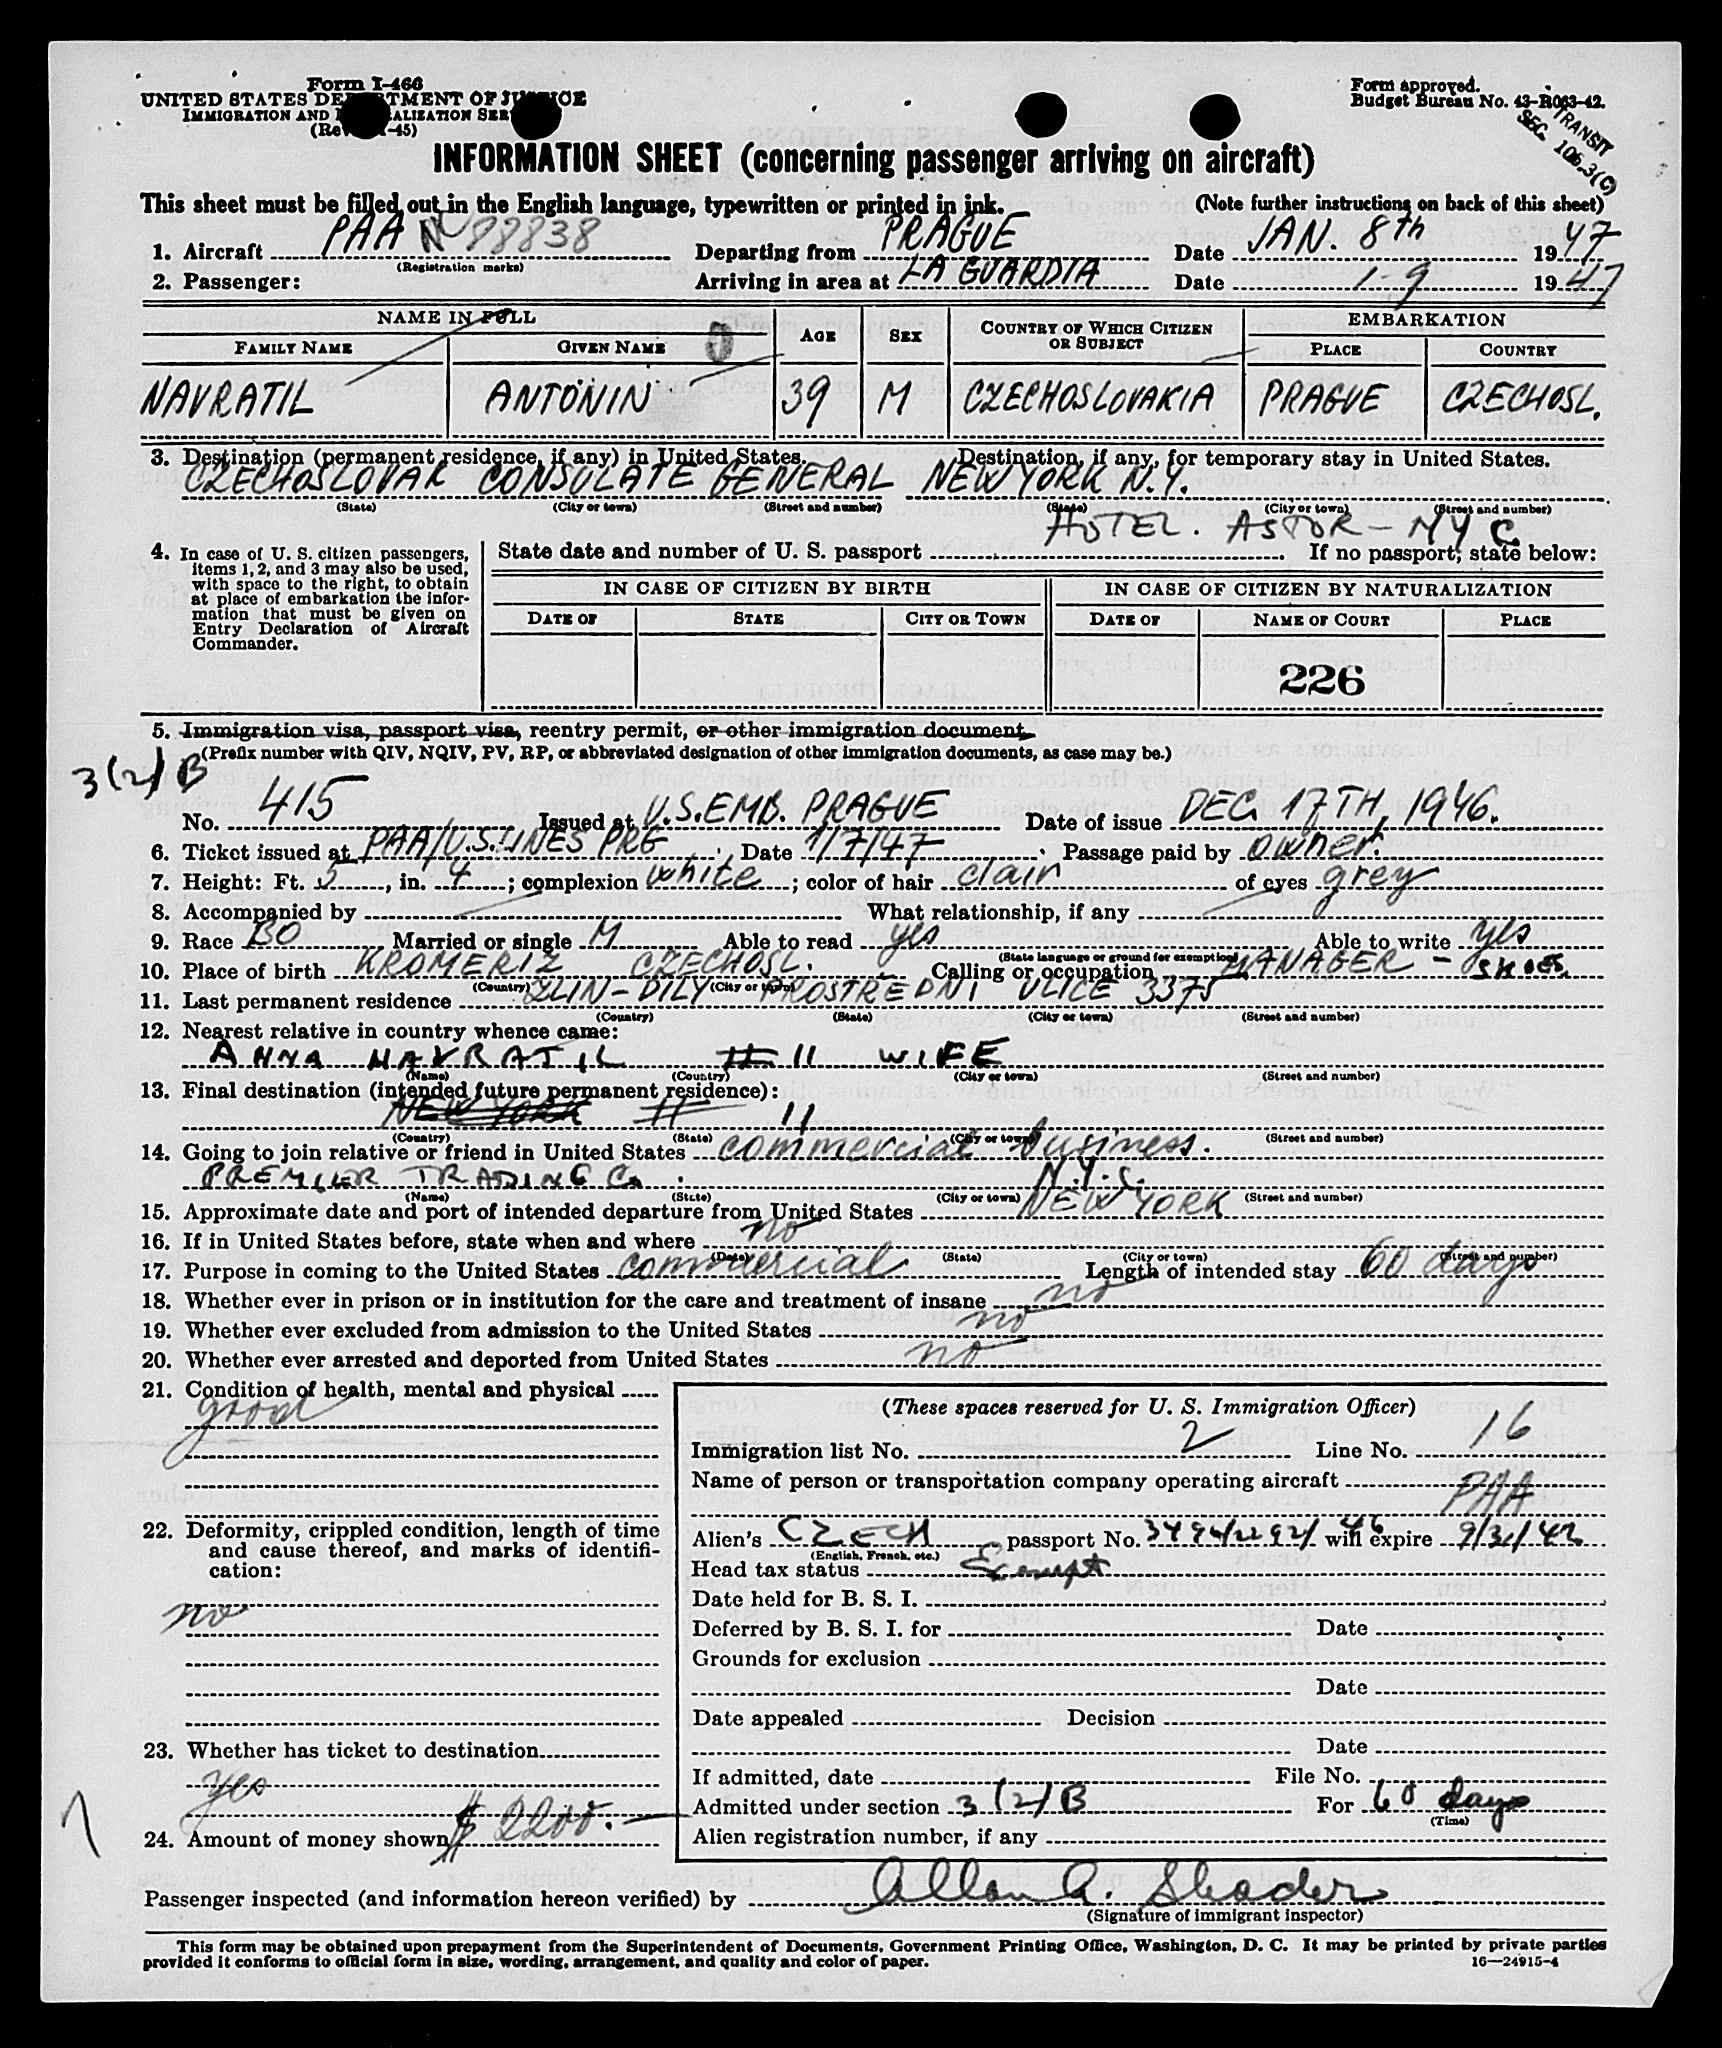 Form I-466
UNITED STATES DEPARTMENT OF JUSTICE
IMMIGRATION AND NATURALIZATION SERVICE
(Rev. -45)
Form approved.
Budget Bureau No. 43-R063-42.
TRANSIT
SEC. 106.3(C)
INFORMATION SHEET (concerning passenger arriving on aircraft)
This sheet must be filled out in the English language, typewritten or printed in ink. (Note further instructions on back of this sheet)
1. Aircraft PAA N 88838 Departing from PRAGUE Date JAN. 8th 1947
(Registration marks)
2. Passenger: Arriving in area at LA GUARDIA Date 1-9 1947
NAME IN FULL AGE SEX COUNTRY OF WHICH CITIZEN OR SUBJECT EMBARKATION
FAMILY NAME GIVEN NAME PLACE COUNTRY
NAVRATIL ANTONIN 39 M CZECHOSLOVAKIA PRAGUE CZECHOSL.
3. Destination (permanent residence, if any) in United States. Destination, if any, for temporary stay in United States.
CZECHOSLOVAK CONSULATE GENERAL NEW YORK N.Y.
(State) (City or town) (Street and number) (State) (City or town) (Street and number)
HOTEL. ASTOR - NYC
4. In case of U. S. citizen passengers, items 1, 2, and 3 may also be used, with space to the right, to obtain at place of embarkation the information that must be given on Entry Declaration of Aircraft Commander.
State date and number of U. S. passport If no passport, state below:
IN CASE OF CITIZEN BY BIRTH IN CASE OF CITIZEN BY NATURALIZATION
DATE OF STATE CITY OR TOWN DATE OF NAME OF COURT PLACE
226
5. Immigration visa, passport visa, reentry permit, or other immigration document.
(Prefix number with QIV, NQIV, PV, RP, or abbreviated designation of other immigration documents, as case may be.)
3(2)B
No. 415 Issued at U.S. EMB. PRAGUE Date of issue DEC. 17TH, 1946.
6. Ticket issued at PAA/U.S. LINES PRG Date 1/7/47 Passage paid by owner.
7. Height: Ft. 5, in. 4; complexion white; color of hair clair of eyes grey
8. Accompanied by What relationship, if any
9. Race BO Married or single M Able to read yes Able to write yes
(State language or ground for exemption)
10. Place of birth KROMERIZ CZECHOSL. Calling or occupation MANAGER - SHOES.
(Country) (City or town)
11. Last permanent residence ZLIN - DILY PROSTREDNI ULICE 3375
(Country) (State) (City or town) (Street and number)
12. Nearest relative in country whence came:
ANNA NAVRATIL 11 WIFE
(Name) (Country) (City or town) (Street and number)
13. Final destination (intended future permanent residence):
NEW YORK 11 11
(Country) (State) (City or town) (Street and number)
14. Going to join relative or friend in United States commercial business.
PREMIER TRADING Co. N.Y.C.
(Name) (State) (City or town) (Street and number)
15. Approximate date and port of intended departure from United States NEW YORK
16. If in United States before, state when and where no
(Date) (State) (City or town) (Street and number)
17. Purpose in coming to the United States commercial Length of intended stay 60 days
18. Whether ever in prison or in institution for the care and treatment of insane no
19. Whether ever excluded from admission to the United States no
20. Whether ever arrested and deported from United States no
21. Condition of health, mental and physical
good
22. Deformity, crippled condition, length of time and cause thereof, and marks of identification:
no
23. Whether has ticket to destination
yes
24. Amount of money shown $ 2200.-
(These spaces reserved for U. S. Immigration Officer)
Immigration list No. 2 Line No. 16
Name of person or transportation company operating aircraft
PAA
Alien's CZECH passport No. will expire
(English, French, etc.)
Head tax status Exempt
Date held for B. S. I.
Deferred by B. S. I. for Date
Grounds for exclusion
Date
Date appealed Decision
Date
If admitted, date File No.
Admitted under section 3(2)B For 60 days
(Time)
Alien registration number, if any
Passenger inspected (and information hereon verified) by Allan A. Shader
(Signature of immigrant inspector)
This form may be obtained upon prepayment from the Superintendent of Documents, Government Printing Office, Washington, D. C. It may be printed by private parties
provided it conforms to official form in size, wording, arrangement, and quality and color of paper.
16—24915-4